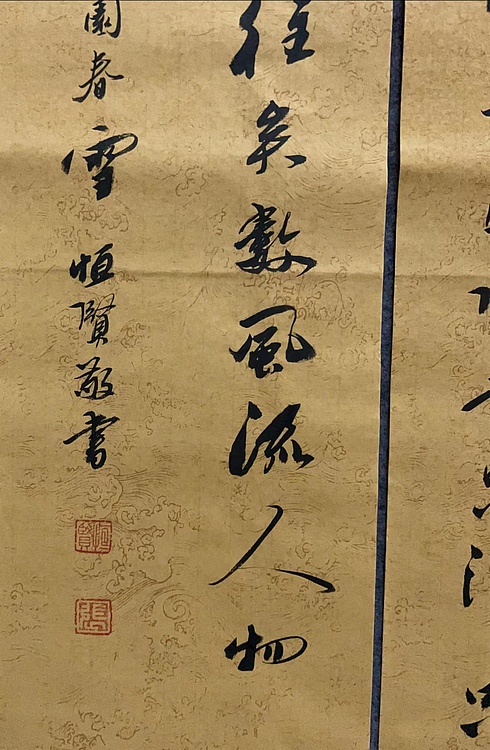 往矣數風流人物
園春雪 恒賢敬書
恒賢
張